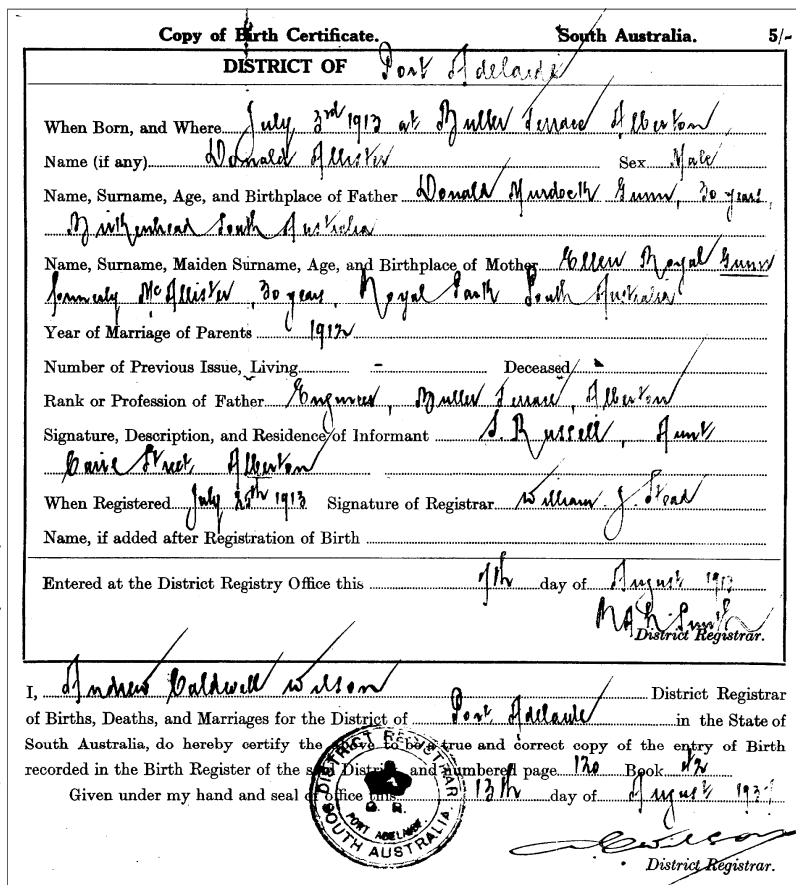 Copy of Birth Certificate. South Australia. 5/-
DISTRICT OF Port Adelaide
When Born, and Where July 3rd 1913 at Buller Terrace Alberton
Name (if any) Donald Allister Sex Male
Name, Surname, Age, and Birthplace of Father Donald Murdoch Gunn, 30 years,
Birkenhead South Australia
Name, Surname, Maiden Surname, Age, and Birthplace of Mother Ellen Royal Gunn
formerly McAllister, 30 years, Royal Park South Australia
Year of Marriage of Parents 1912
Number of Previous Issue, Living - Deceased
Rank or Profession of Father Engineer, Buller Terrace, Alberton
Signature, Description, and Residence of Informant S. Russell, Aunt
Street Alberton
When Registered July 25th 1913 Signature of Registrar William J. Stead
Name, if added after Registration of Birth
Entered at the District Registry Office this 7th day of August 1913
District Registrar.
I, Andrew Caldwell Wilson District Registrar
of Births, Deaths, and Marriages for the District of Port Adelaide in the State of
South Australia, do hereby certify the above to be a true and correct copy of the entry of Birth
recorded in the Birth Register of the said District and numbered page 120 Book
Given under my hand and seal of office this 13th day of August
DISTRICT REGISTRAR
G. R.
PORT ADELAIDE.
SOUTH AUSTRALIA.
Wilson
District Registrar.